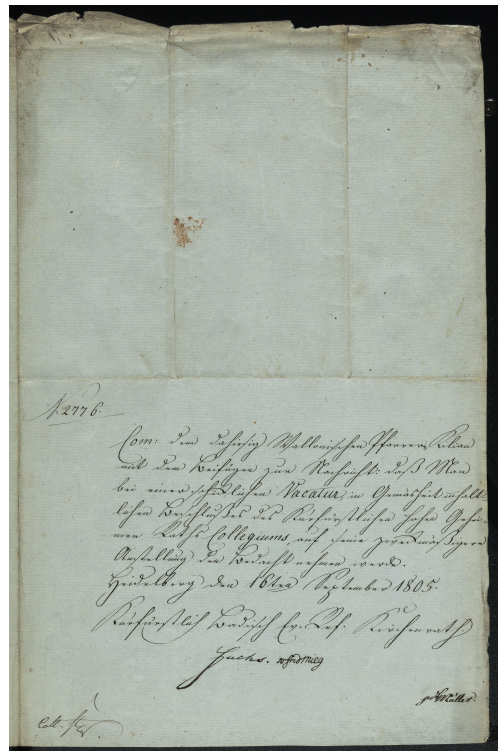 N. 2776.
Com: dem dahiesig Wallonischen Pfarrer Kilian
mit dem Beifügen zur Nachricht: daß Man
bei einer schicklichen Vacatur, in Gemäsheit
lichen Beschlusses des Kurfürstlichen hohen Gehei-
men Raths Collegiums, auf seine zweckmäßigere
Anstellung den Bedacht nehmen werde.
Heidelberg den 16ten September 1805.
Kurfürstlich Badisch Ev. Ref. Kirchenrath
Fuchs.
Müller.
Coll.